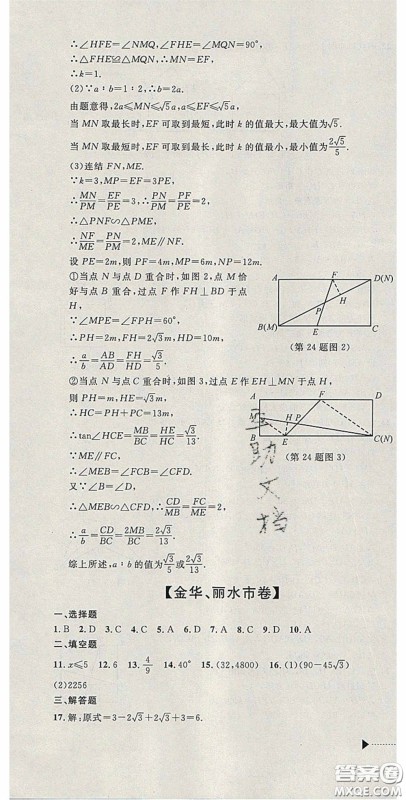 ∴∠HFE=∠NMQ,∠FHE=∠MQN=90°,
∴△FHE≌△MQN.∴MN=EF.
∴k=1.
(2)∵a∶b=1∶2,∴b=2a.
由题意得,2a≤MN≤√5a,a≤EF≤√5a.
当MN取最长时,EF可取到最短,此时k的值最大,最大值为√5.
当MN取最短时,EF可取到最长,此时k的值最小,最小值为2√5/5.
(3)连结FN,ME.
∵k=3,MP=EF=3PE,
∴MN/PM=EF/PE=3.∴PN/PM=PF/PE=2,
∴△PNF∽△PME.
∴NF/ME=PN/PM=2,ME∥NF.
设PE=2m,则PF=4m,MP=6m,NP=12m.
①当点N与点D重合时,如图2,点M恰
好与B重合,过点F作FH⊥BD于点
H,
∵∠MPE=∠FPH=60°,
∴PH=2m,FH=2√3m,HD=10m,
∴a/b=AB/AD=FH/HD=√3/5.
F
D(N)
H
P
B(M)
E
(第24题图2)
②当点N与C重合时,过点E作EH⊥MN于点H,
则PH=m,HE=√3m.
∴HC=PH+PC=13m,
∴tan∠HCE=MB/BC=HE/HC=√3/13.
∵ME∥FC,
∴∠MEB=∠FCB=∠CFD.
又∵∠B=∠D,
∴△MEB∽△CFD,∴CD/MB=FC/ME=2.
∴a/b=CD/BC=2MB/BC=2√3/13.
综上所述,a∶b的值为√3/5或2√3/13.
A
F
D
H
P
B
E
C(N)
(第24题图3)
助文档
【金华、丽水市卷】
一、选择题
1.B 2.D 3.C 4.C 5.A 6.D 7.B 8.D 9.D 10.A
二、填空题
11.x≤5 12.6 13.4/9 14.40° 15.(32,4800) 16.(1)(90-45√3)
(2)2256
三、解答题
17.解:原式=3-2√3+2√3+3=6.
答案圈
MXQE.COM